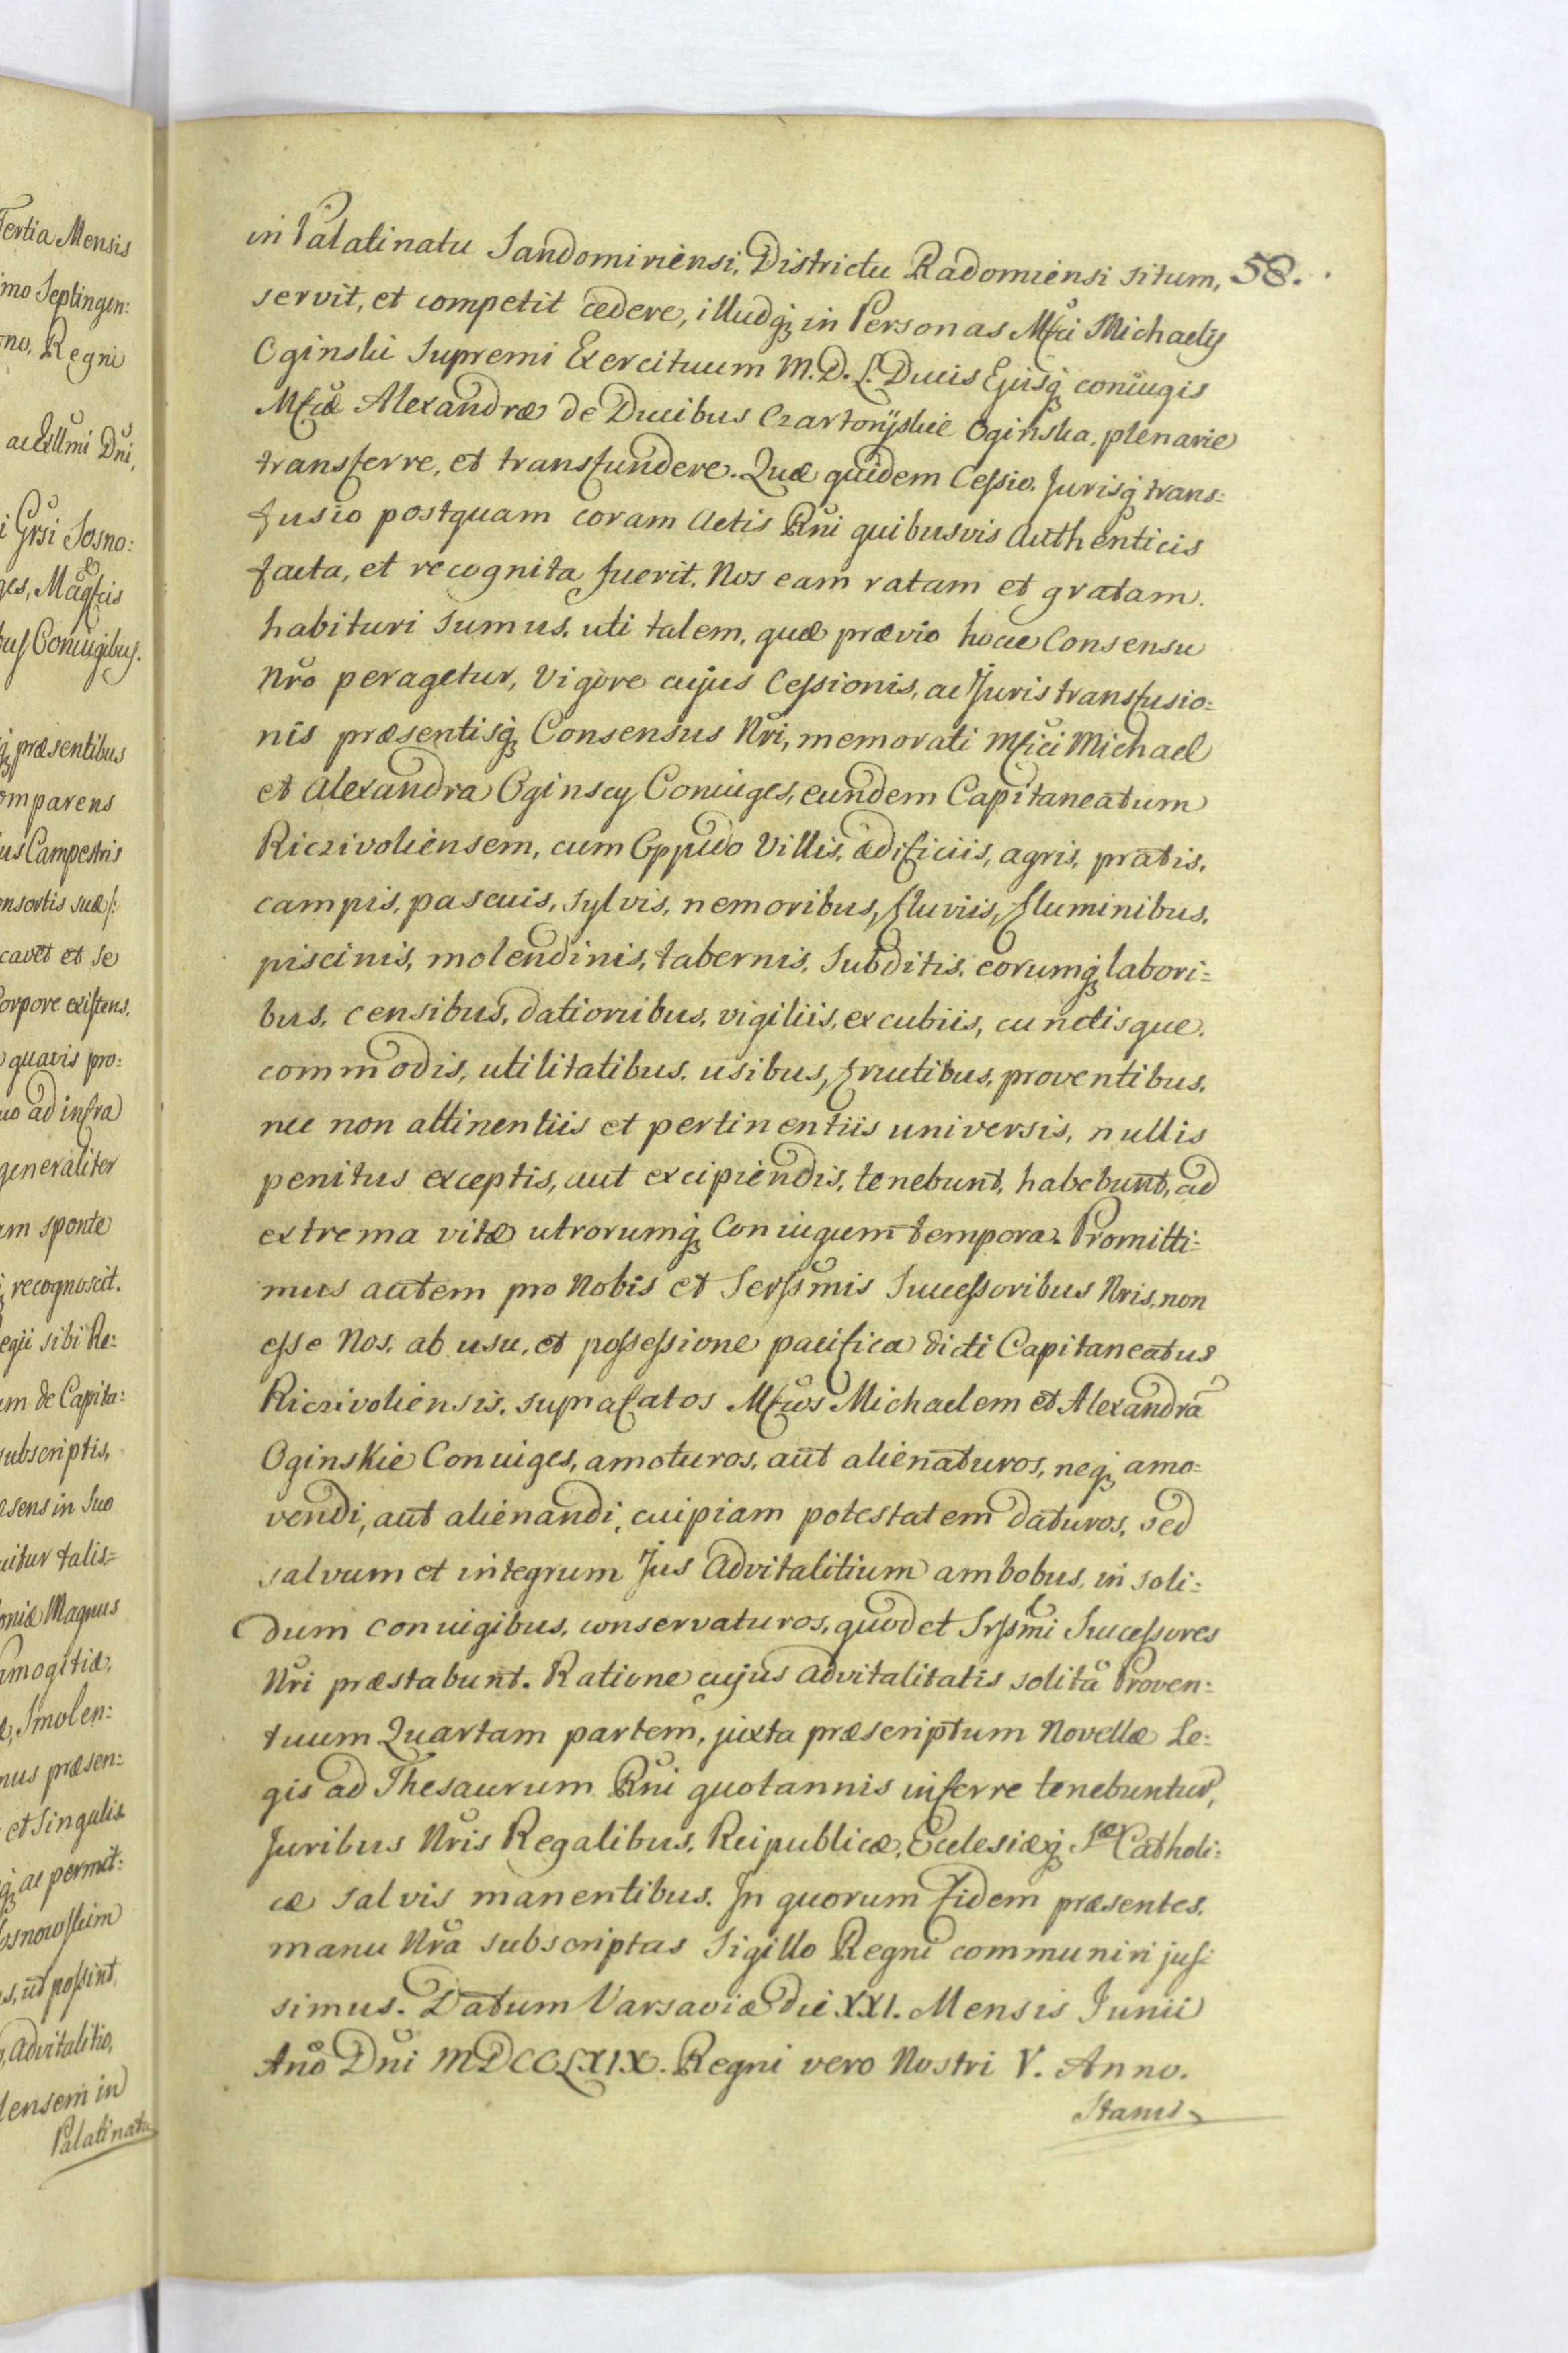 in Palatinatu Sandomiriensi, Districtu Radomiensi situm, 58.
servit, et competit cedere, illudq; in Personas Mfci Michaelis
Oginski Supremi Exercituum M. D. L. Ducis Ejusq; coniugis
Mfcæ Alexandræ de Ducibus Czartoryskie Oginska, plenarie
transferre, et transfundere. Quæ quidem Cessio, Jurisq; trans=
fusio postquam coram Actis Rni quibusvis Authenticis
facta, et recognita fuerit, Nos eam ratam et gratam
habituri sumus, uti talem, quæ prævio hocce Consensu
Nro peragetur, Vigore cujus Cessionis, ac Juris transfusio=
nis præsentisq; Consensus Nri, memorati Mfici Michael
et Alexandra Oginscy Coniuges, eundem Capitaneatum
Ricziwoliensem, cum Oppido Villis, ædificiis, agris, pratis,
campis, pascuis, sylvis, nemoribus, fluviis, fluminibus,
piscinis, molendinis, tabernis, subditis, eorumq; labori=
bus, censibus, dationibus, vigiliis, excubiis, cunctisque
commodis, utilitatibus, usibus, fructibus, proventibus,
nec non attinentiis et pertinentiis universis, nullis
penitus exceptis, aut excipiendis, tenebunt, habebunt, ad
extrema vitæ utrorumq; Coniugum tempora. Promitti=
mus autem pro Nobis et Serssmis Successoribus Nris, non
esse Nos, ab usu, et possessione pacifica dicti Capitaneatus
Ricziwoliensis, suprafatos Mfcos Michaelem et Alexandrã
Oginskie Coniuges, amoturos, aut alienaturos, neq; amo=
vendi, aut alienandi, cuipiam potestatem daturos, sed
salvum et integrum Jus Advitalitium ambobus, in soli=
dum coniugibus, conservaturos, quod et Srssmi Successores
Nri præstabunt. Ratione cujus advitalitatis solitã Proven=
tuum Quartam partem, juxta præscriptum Novellæ Le=
gis ad Thesaurum Rni quotannis inferre tenebuntur,
Juribus Nris Regalibus, Reipublicæ, Ecclesiæq; Sæ Catholi=
cæ salvis manentibus. In quorum Fidem præsentes,
manu Nra subscriptas Sigillo Regni communiri jus=
simus. Datum Varsaviæ die XXI. Mensis Junii
Año Dni MDCCLXIX. Regni vero Nostri V. Anno.
Stanis
Tertia Mensis
imo Septingen:
no, Regni
ac Illmi Dni,
i Grsi Sosno:
ges, Magfcis
bus Coniugibus.
q; præsentibus
omparens
us Campestris
onsortis suæ/:
cavet et se
Corpore existens,
quavis pro:
uo ad infra
generaliter
am sponte
recognoscit.
egii sibi Re:
um de Capita:
subscriptis,
æsens in suo
uitur talis=
oniæ Magnus
amogitiæ,
æ, Smolen:
nus præsen:
et Singulis
q; ac permit:
osnowskim
s, ut possint
Advitalitio,
lensem in
Palatinatu